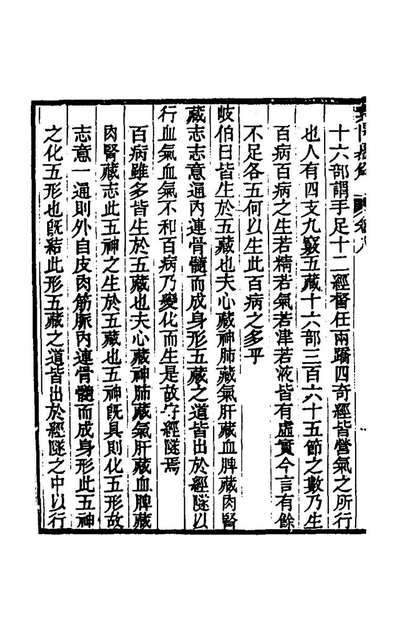 卷八
十六部謂手足十二經督任兩蹻四奇經皆營氣之所行
也人有四支九竅五藏十六部三百六十五節之數乃生
百病百病之生若精若氣若津若液皆有虛實今言有餘
不足各五何以生此百病之多乎
岐伯曰皆生於五藏也夫心藏神肺藏氣肝藏血脾藏肉腎
藏志志意通內連骨髓而成身形五藏之道皆出於經隧以
行血氣血氣不和百病乃變化而生是故守經隧焉
百病雖多皆生於五藏也夫心藏神肺藏氣肝藏血脾藏
肉腎藏志此五神之生於五藏也五神旣具則化五形故
志意一通則外自皮肉筋脈內連骨髓而成身形此五神
之化五形也旣結此形五藏之道皆出於經隧之中以行